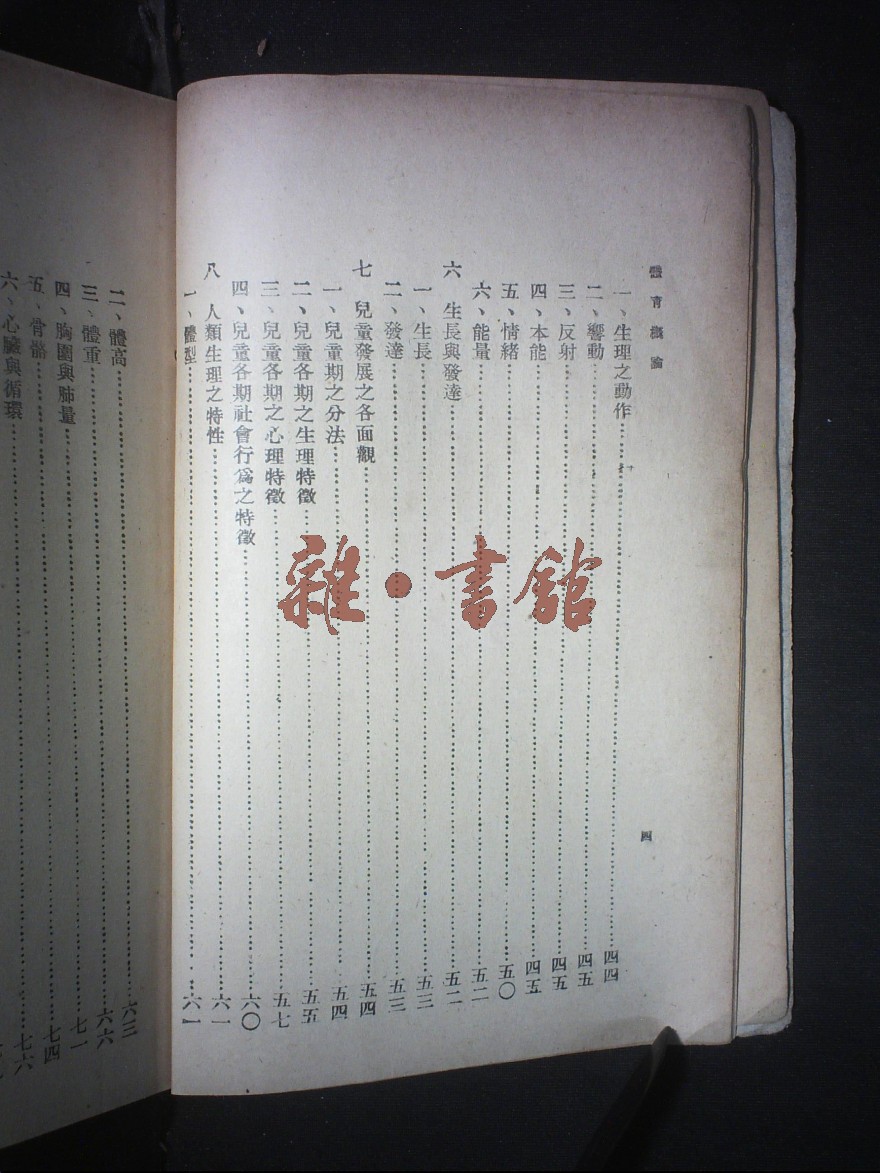 體育概論
四
一、生理之動作……四四
二、響動……四五
三、反射……四五
四、本能……四五
五、情緒……五〇
六、能量……五二
六 生長與發達……五二
一、生長……五三
二、發達……五三
七 兒童發展之各面觀……五四
一、兒童期之分法……五四
二、兒童各期之生理特徵……五五
三、兒童各期之心理特徵……五七
四、兒童各期社會行爲之特徵……六〇
八 人類生理之特性……六一
一、體型……六一
二、體高……六三
三、體重……六六
四、胸圍與肺量……七一
五、骨骼……七四
六、心臟與循環……七六
雜·書館